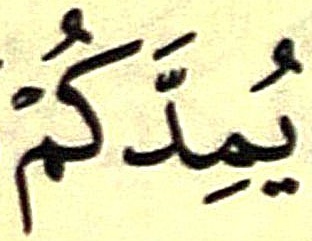 يُمِدَّكُمْ